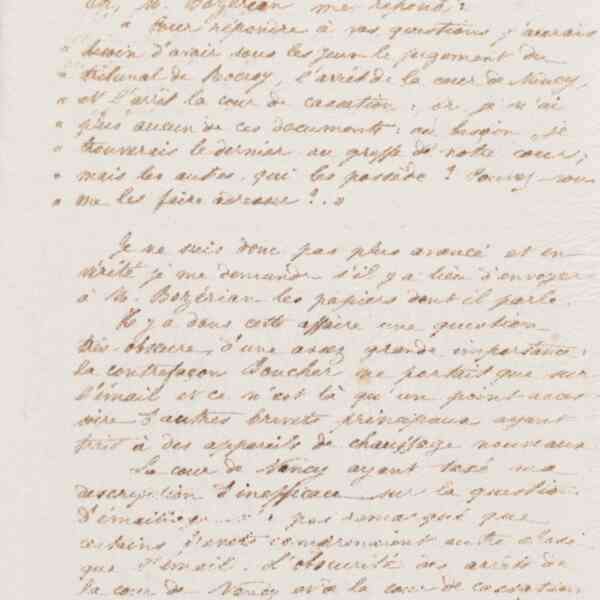 M. Bozérian me répond :
" Pour répondre à vos questions, j'aurais
" besoin d'avoir sous les yeux le jugement du
" tribunal de Rocroy, l'arrêt de la cour de Nancy,
" et l'arrêt la cour de cassation ; or je n'ai
" plus aucun de ces documents ; au besoin, je
" trouverais le dernier au greffe de notre cour ;
" mais les autres, qui les possède ? Pouvez-vous
" me les faire adresser ? "
Je ne suis donc pas plus avancé et en
vérité je me demande s'il y a lieu d'envoyer
à M. Bozérian les papiers dont il parle.
Il y a dans cette affaire une question
très obscure, d'une assez grande importance ;
la contrefaçon Boucher ne portait que sur
l'émail et ce n'est là qu'un point acces
soire d'autres brevets principaux ayant
trait à des appareils de chauffage nouveaux
La cour de Nancy ayant taxé ma
description d'inefficace sur la question
d'émaillage pas remarqué que
certains brevets comprenaient autre chose
que l'émail. L'obscurité des arrêts de
la cour de Nancy et de la cour de cassation